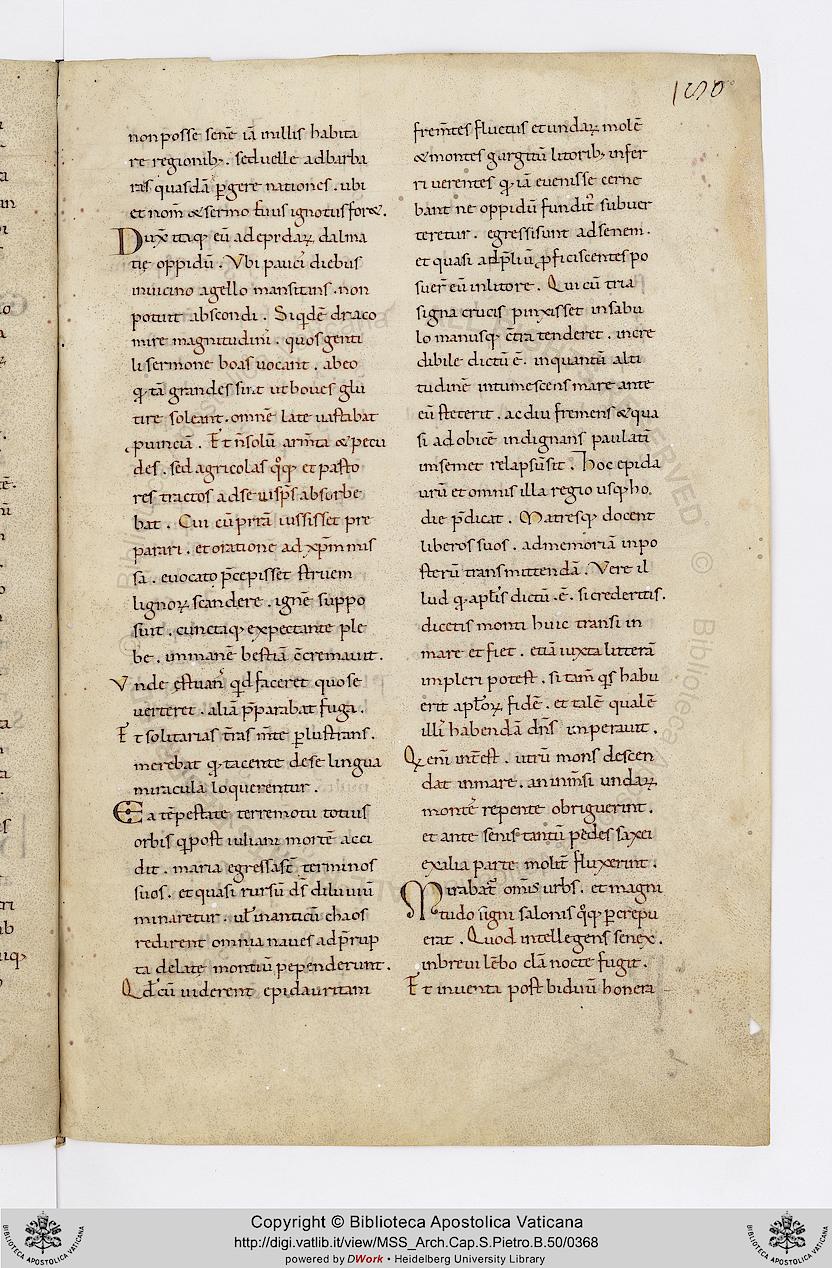 150
non posse senē iā in illis habita
re regionib;. sed uelle ad barba
ras quasdā ꝑgere nationes. ubi
et nom̄ & sermo ei᷒ ignotus for&.
Dux̄ itaq; eū ad epẏdaꝝ dalma
tię oppidū. Vbi pauci diebus
in uicino agello mansitans. non
potuit abscondi. Siqͥdē draco
mire magnitudini. quos genti
li sermone boas uocant. abeo
qͥ tā grandes sint ut boues glu
tire soleant. omnē late uastabat
ꝓuinciā. Et n̄ solū arm̄ta & pecu
des. sed agricolas qͦq; et pasto
res tractos ad se ui sp̄s absorbe
bat. Cui cū pyrā iussisset pre
parari. et oratione ad xp̄m mis
sa. euocato p̄cepisset struem
lignoꝝ scandere. ignē suppo
suit. cunctaq; expectante ple
be. immanē bestiā c̄cremauit.
Vnde ęstuans qͥd faceret quo se
uerteret. aliā p̄parabat fugā.
Et solitarias t̄ras m̄te ꝑlustrans.
merebat qͥ tacente de se lingua
miracula loquerentur.
Ea tēpestate terremotu totius
orbis q̄ post iuliani mortē acci
dit. maria egressa st̄ terminos
suos. et quasi rursū d̄s diluuiū
minaretur. ul̄ in anticū chaos
redirent omnia naues ad p̄rup
ta delatę montiū pependerunt.
Qd̄ cū uiderent epidauritani
frem̄tes fluctus et undaꝝ molē
& montes gurgitū litorib; infer
ri uerentes qͥ iā euenisse cerne
bant ne oppidū fundit᷒ subuer
teretur. egressi sunt ad senem.
et quasi ad p̄liū ꝓficiscentes po
suer̄ eū in litore. Qui cū tria
signa crucis pinxisset in sabu
lo manusq; c̄tra tenderet. incre
dibile dictū ē. in quantū alti
tudinē intumescens mare ante
eū steterit. ac diu fremens & qua
si ad obicē indignans paulatī
in semet relapsū sit. Hoc epida
urū et omnis illa regio usq; ho
die p̄dicat. Matresq; docent
liberos suos. ad memoriā in po
sterū transmittendā. Vere il
lud qͥ apl̄is dictū .ē. si credertis.
dicetis monti huic transi in
mare et fiet. etiā iuxta litterā
impleri potest. si tam̄ qͥs habu
erit apl̄oꝝ fidē. et talē qualē
illi᷒ habendā dn̄s imperauit.
Qͥ enī int̄est. utrū mons descen
dat in mare. an inm̄si undaꝝ
montes repente obriguerint.
et ante senis tantū pedes saxei
ex alia parte molit̄ fluxerint.
Mirabat᷒ omīs urbs. et magni
tudo signi salonis qͦq; percrepu
erat. Quod intellegens senex.
in breui lēbo clā nocte fugit.
Et inuenta post biduū honera
Copyright © Biblioteca Apostolica Vaticana
http://digi.vatlib.it/view/MSS_Arch.Cap.S.Pietro.B.50/0368
powered by DWork • Heidelberg University Library
BIBLIOTECA APOSTOLICA VATICANA
BIBLIOTECA APOSTOLICA VATICANA